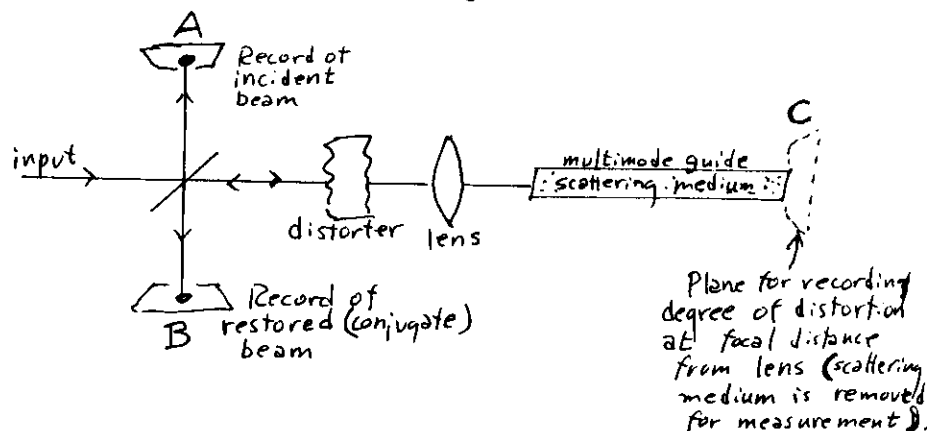 A
Record of
incident
beam
input
distorter
lens
multimode guide
scattering medium
C
B
Record of
restored (conjugate)
beam
Plane for recording
degree of distortion
at focal distance
from lens (scattering
medium is removed
for measurement).